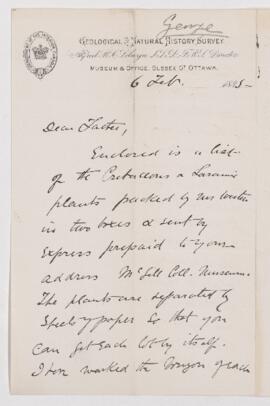 George
GEOLOGICAL & NATURAL HISTORY SURVEY.
Alfred R.C. Selwyn L.L.D. F.R.S. Director
MUSEUM & OFFICE, SUSSEX ST OTTAWA.
6 Feb. 1885
Dear Father,
Enclosed is a list
of the Cretaceous & Laramie
plants packed by Mr Weston
in two boxes & sent by
Express prepaid to your
address McGill Coll. Museum.
The plants are separated by
sheets of paper so that you
can get each lot by itself.
I have marked the horizon of each